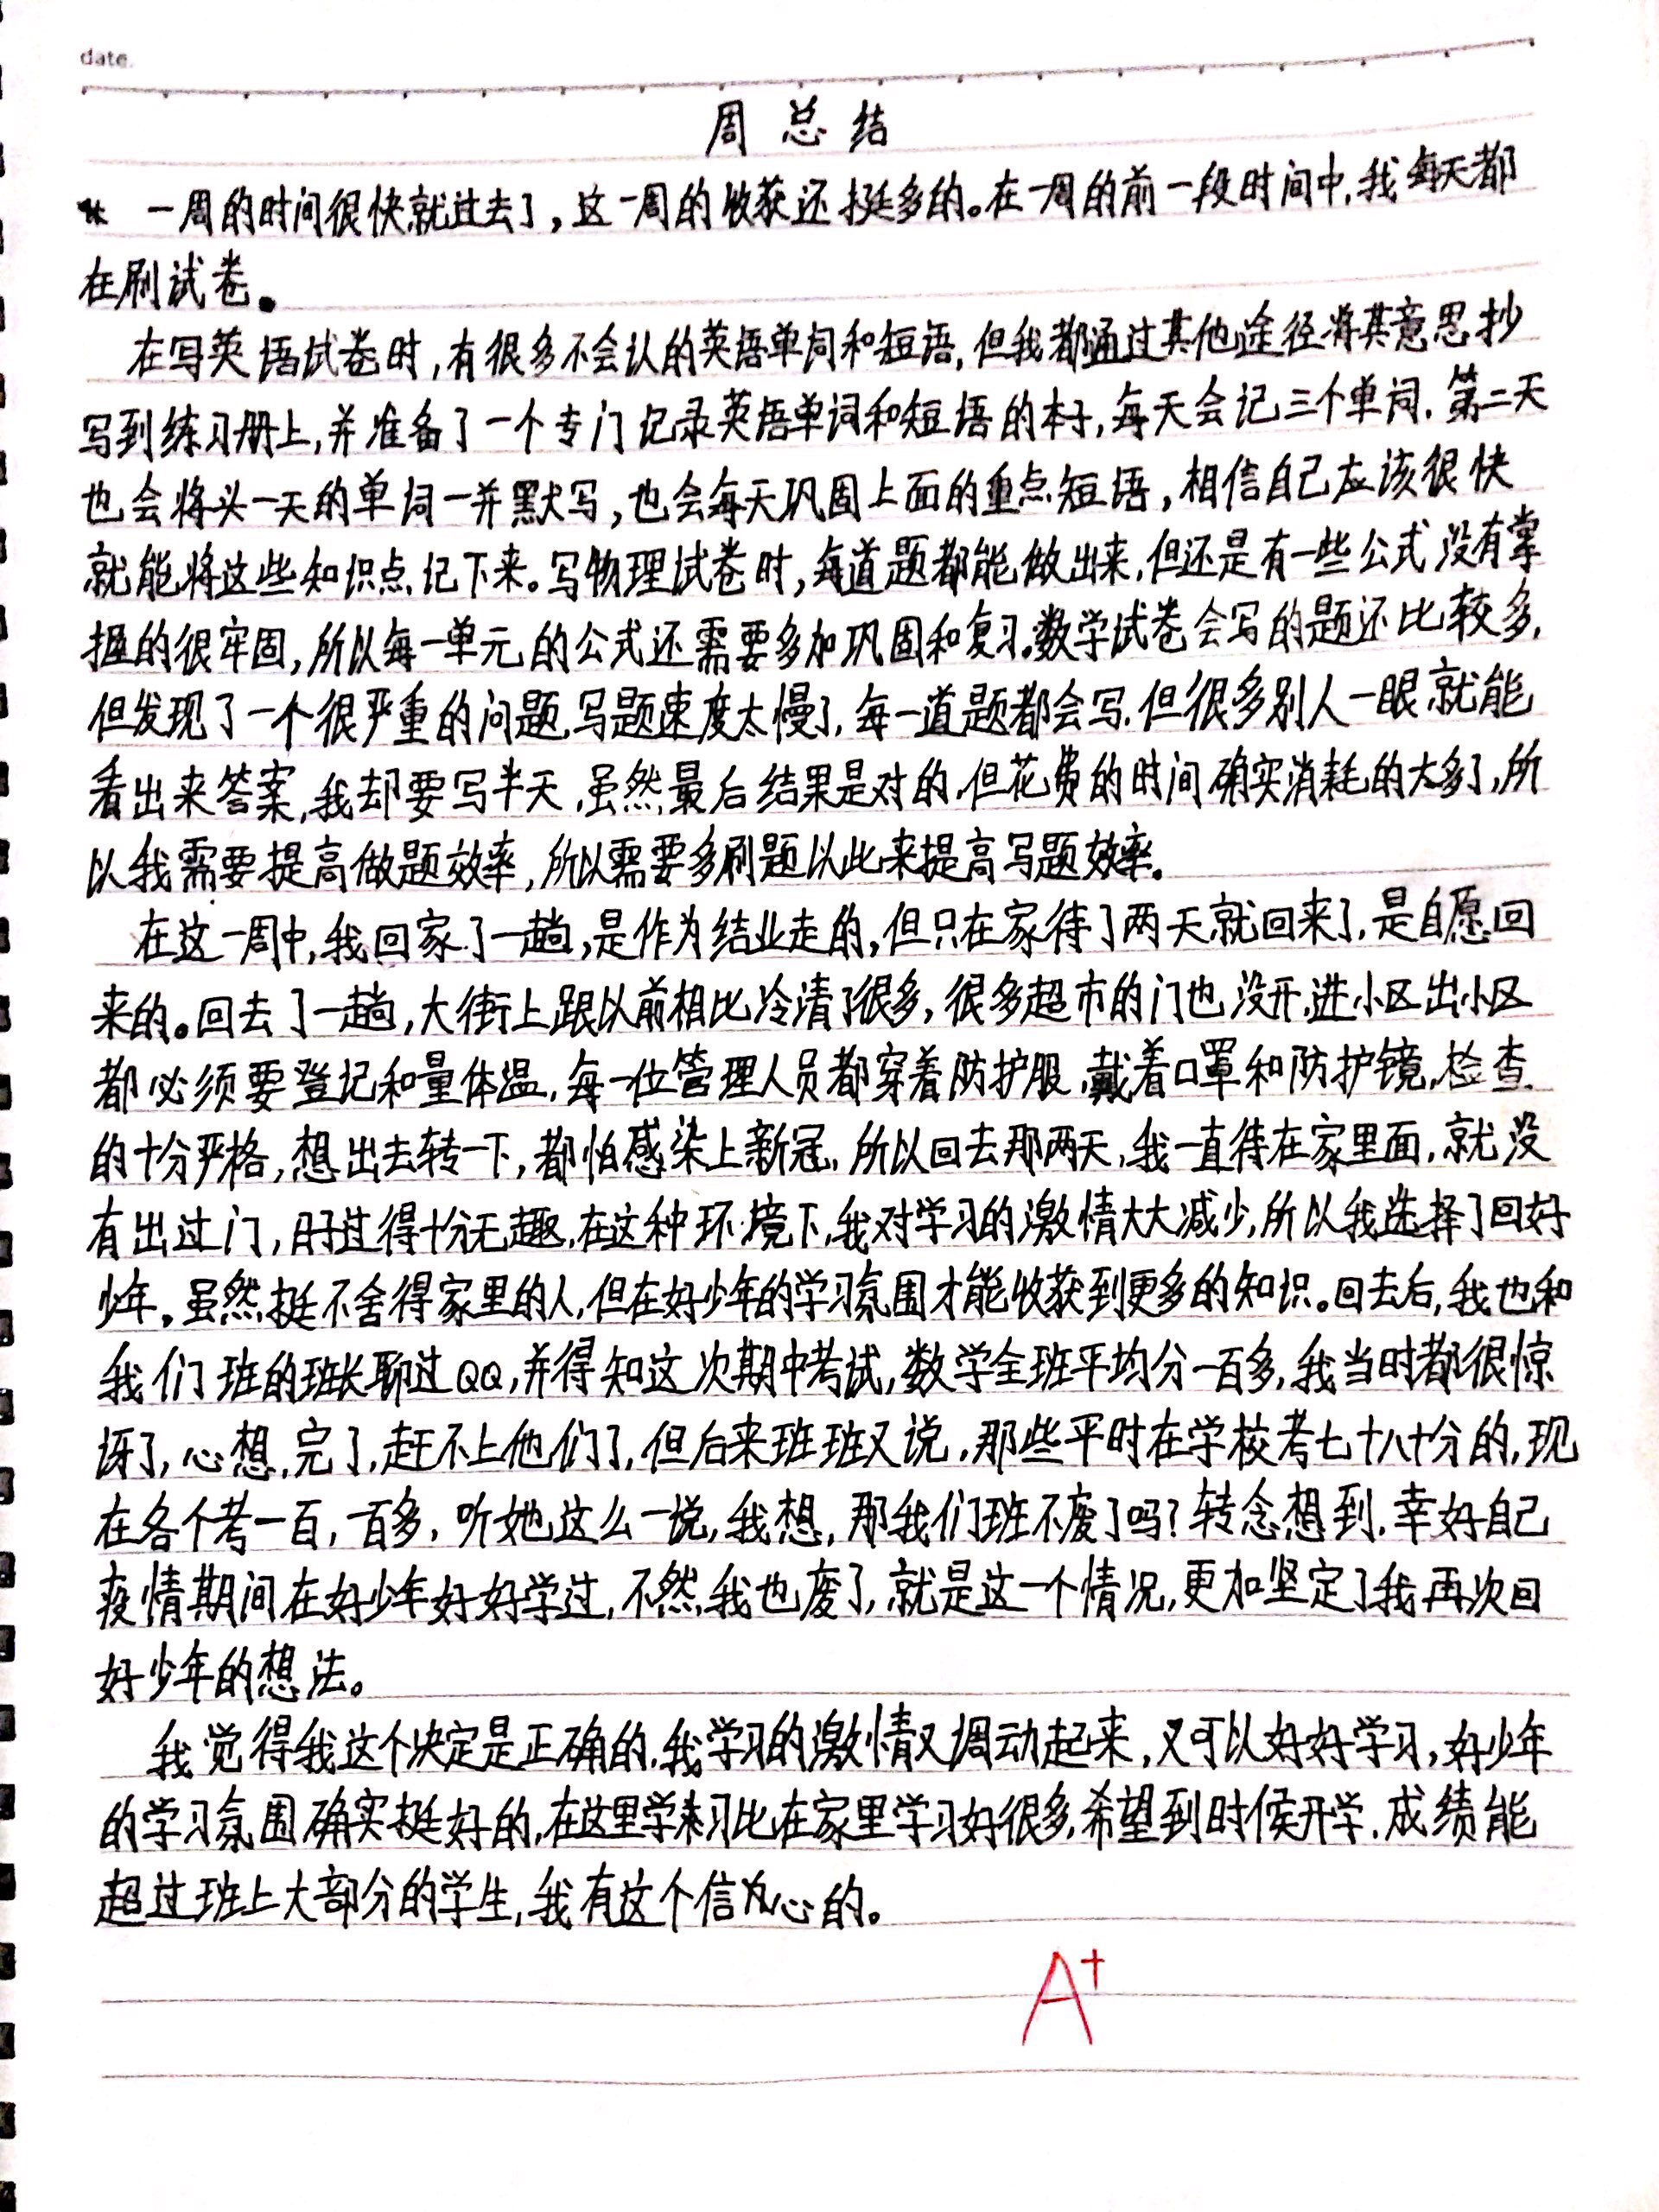 date.
周总结
一周的时间很快就过去了,这一周的收获还挺多的。在一周的前一段时间中,我每天都
在刷试卷。
在写英语试卷时,有很多不会认的英语单词和短语,但我都通过其他途径将其意思抄
写到练习册上,并准备了一个专门记录英语单词和短语的本子,每天会记三个单词,第二天
也会将头一天的单词一并默写,也会每天巩固上面的重点短语,相信自己应该很快
就能将这些知识点记下来。写物理试卷时,每道题都能做出来,但还是有一些公式没有掌
握的很牢固,所以每一单元的公式还需要多加巩固和复习。数学试卷会写的题还比较多,
但发现了一个很严重的问题,写题速度太慢了,每一道题都会写,但很多别人一眼就能
看出来答案,我却要写半天,虽然最后结果是对的,但花费的时间确实消耗的太多了,所
以我需要提高做题效率,所以需要多刷题以此来提高写题效率。
在这一周中,我回家了一趟,是作为结业走的,但只在家待了两天就回来了,是自愿回
来的。回去了一趟,大街上跟以前相比冷清了很多,很多超市的门也没开,进小区出小区
都必须要登记和量体温,每一位管理人员都穿着防护服,戴着口罩和防护镜,检查
的十分严格,想出去转一下,都怕感染上新冠,所以回去那两天,我一直待在家里面,就没
有出过门,日子过得十分无趣,在这种环境下,我对学习的激情大大减少,所以我选择了回好
少年。虽然挺不舍得家里的人,但在好少年的学习氛围才能收获到更多的知识。回去后,我也和
我们班的班长聊过QQ,并得知这次期中考试,数学全班平均分一百多,我当时都很惊
讶了,心想,完了,赶不上他们了,但后来班班又说,那些平时在学校考七十八十分的,现
在各个考一百,一百多,听她这么一说,我想,那我们班不废了吗?转念想到,幸好自己
疫情期间在好少年好好学过,不然我也废了,就是这一个情况,更加坚定了我再次回
好少年的想法。
我觉得我这个决定是正确的,我学习的激情又调动起来,又可以好好学习,好少年
的学习氛围确实挺好的,在这里学习比在家里学习好很多,希望到时候开学,成绩能
超过班上大部分的学生,我有这个信心的。
A+